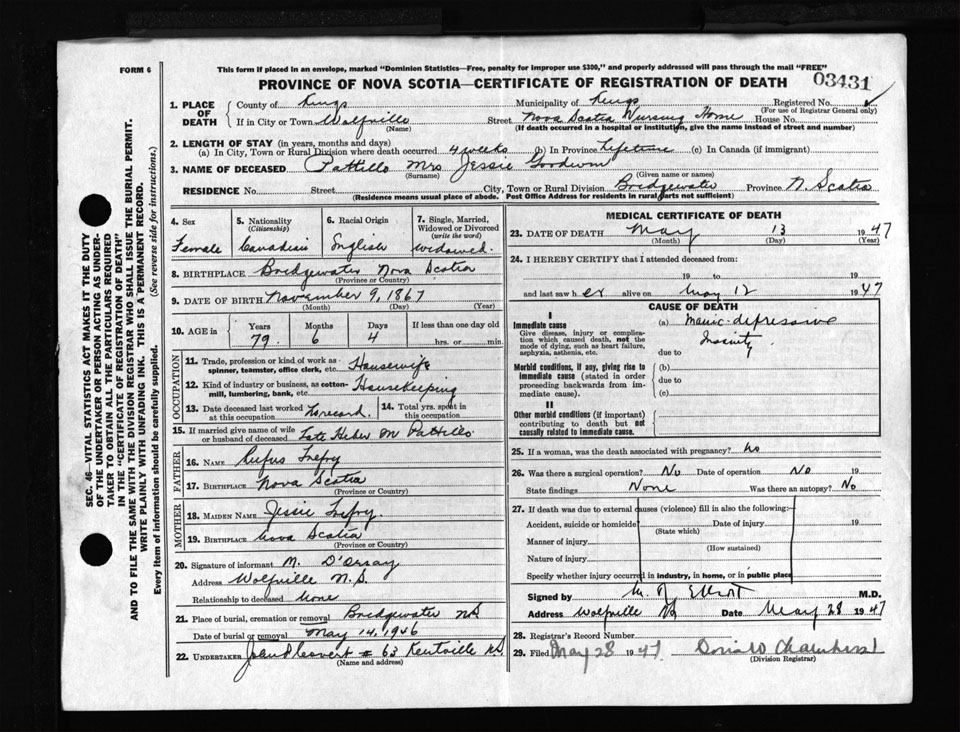 FORM 6
This form if placed in an envelope, marked "Dominion Statistics—Free, penalty for improper use $300," and properly addressed will pass through the mail "FREE"
PROVINCE OF NOVA SCOTIA—CERTIFICATE OF REGISTRATION OF DEATH
03431
1. PLACE OF DEATH County of Kings Municipality of Kings Registered No.
(For use of Registrar General Only)
If in City or Town Wolfville Street Nova Scotia Nursing Home House No.
(Name) (If death occurred in a hospital or institution, give the name instead of street and number)
2. LENGTH OF STAY (in years, months and days)
(a) In City, Town or Rural Division where death occurred 4 weeks (b) In Province Lifetime (c) In Canada (if immigrant)
3. NAME OF DECEASED Pattillo Mrs Jessie Goodwin
(Surname) (Given name or names)
RESIDENCE No. Street City, Town or Rural Division Bridgewater Province N. Scotia
(Residence means usual place of abode. Post Office Address for residents in rural parts not sufficient)
4. Sex Female
5. Nationality (Citizenship) Canadian
6. Racial Origin English
7. Single, Married, Widowed or Divorced (write the word) Widowed.
8. BIRTHPLACE Bridgewater Nova Scotia
(Province or Country)
9. DATE OF BIRTH November 9, 1867
(Month) (Day) (Year)
10. AGE in Years 79 Months 6 Days 4 If less than one day old hrs. or min.
OCCUPATION
11. Trade, profession or kind of work as spinner, teamster, office clerk, etc. Housewife
12. Kind of industry or business, as cotton-mill, lumbering, bank, etc. Housekeeping
13. Date deceased last worked at this occupation No record.
14. Total yrs. spent in this occupation
15. If married give name of wife or husband of deceased Late Heber M Pattillo
FATHER
16. NAME Rufus Trefry
17. BIRTHPLACE Nova Scotia
(Province or Country)
MOTHER
18. MAIDEN NAME Jessie Trefry.
19. BIRTHPLACE Nova Scotia
(Province or Country)
20. Signature of informant M. D'Orsay
Address Wolfville N.S.
Relationship to deceased None
21. Place of burial, cremation or removal Bridgewater NS
Date of burial or removal May 14, 1946
22. UNDERTAKER # 63 Kentville NS
(Name and address)
MEDICAL CERTIFICATE OF DEATH
23. DATE OF DEATH May 13 1947
(Month) (Day) (Year)
24. I HEREBY CERTIFY that I attended deceased from:
19 to 19
and last saw her alive on May 12 1947
CAUSE OF DEATH
I
Immediate cause
Give disease, injury or complication which caused death, not the mode of dying, such as heart failure, asphyxia, asthenia, etc.
(a) Manic-depressive
Insanity
due to
Morbid conditions, if any, giving rise to immediate cause (stated in order proceeding backwards from immediate cause).
(b)
due to
(c)
II
Other morbid conditions (if important) contributing to death but not causally related to immediate cause.
25. If a woman, was the death associated with pregnancy? No
26. Was there a surgical operation? No Date of operation No 19
State findings None Was there an autopsy? No
27. If death was due to external causes (violence) fill in also the following:—
Accident, suicide or homicide Date of injury 19
(State which)
Manner of injury
(How sustained)
Nature of injury
Specify whether injury occurred in industry, in home, or in public place
Signed by M. J. Elliott M.D.
Address Wolfville NS Date May 28 1947
28. Registrar's Record Number
29. Filed May 28 1947 Donald Chambers
(Division Registrar)
SEC. 46—VITAL STATISTICS ACT MAKES IT THE DUTY
OF THE UNDERTAKER OR PERSON ACTING AS UNDER-
TAKER TO OBTAIN ALL THE PARTICULARS REQUIRED
IN THE "CERTIFICATE OF REGISTRATION OF DEATH"
AND TO FILE THE SAME WITH THE DIVISION REGISTRAR WHO SHALL ISSUE THE BURIAL PERMIT.
WRITE PLAINLY WITH UNFADING INK. THIS IS A PERMANENT RECORD.
Every item of information should be carefully supplied. (See reverse side for instructions.)